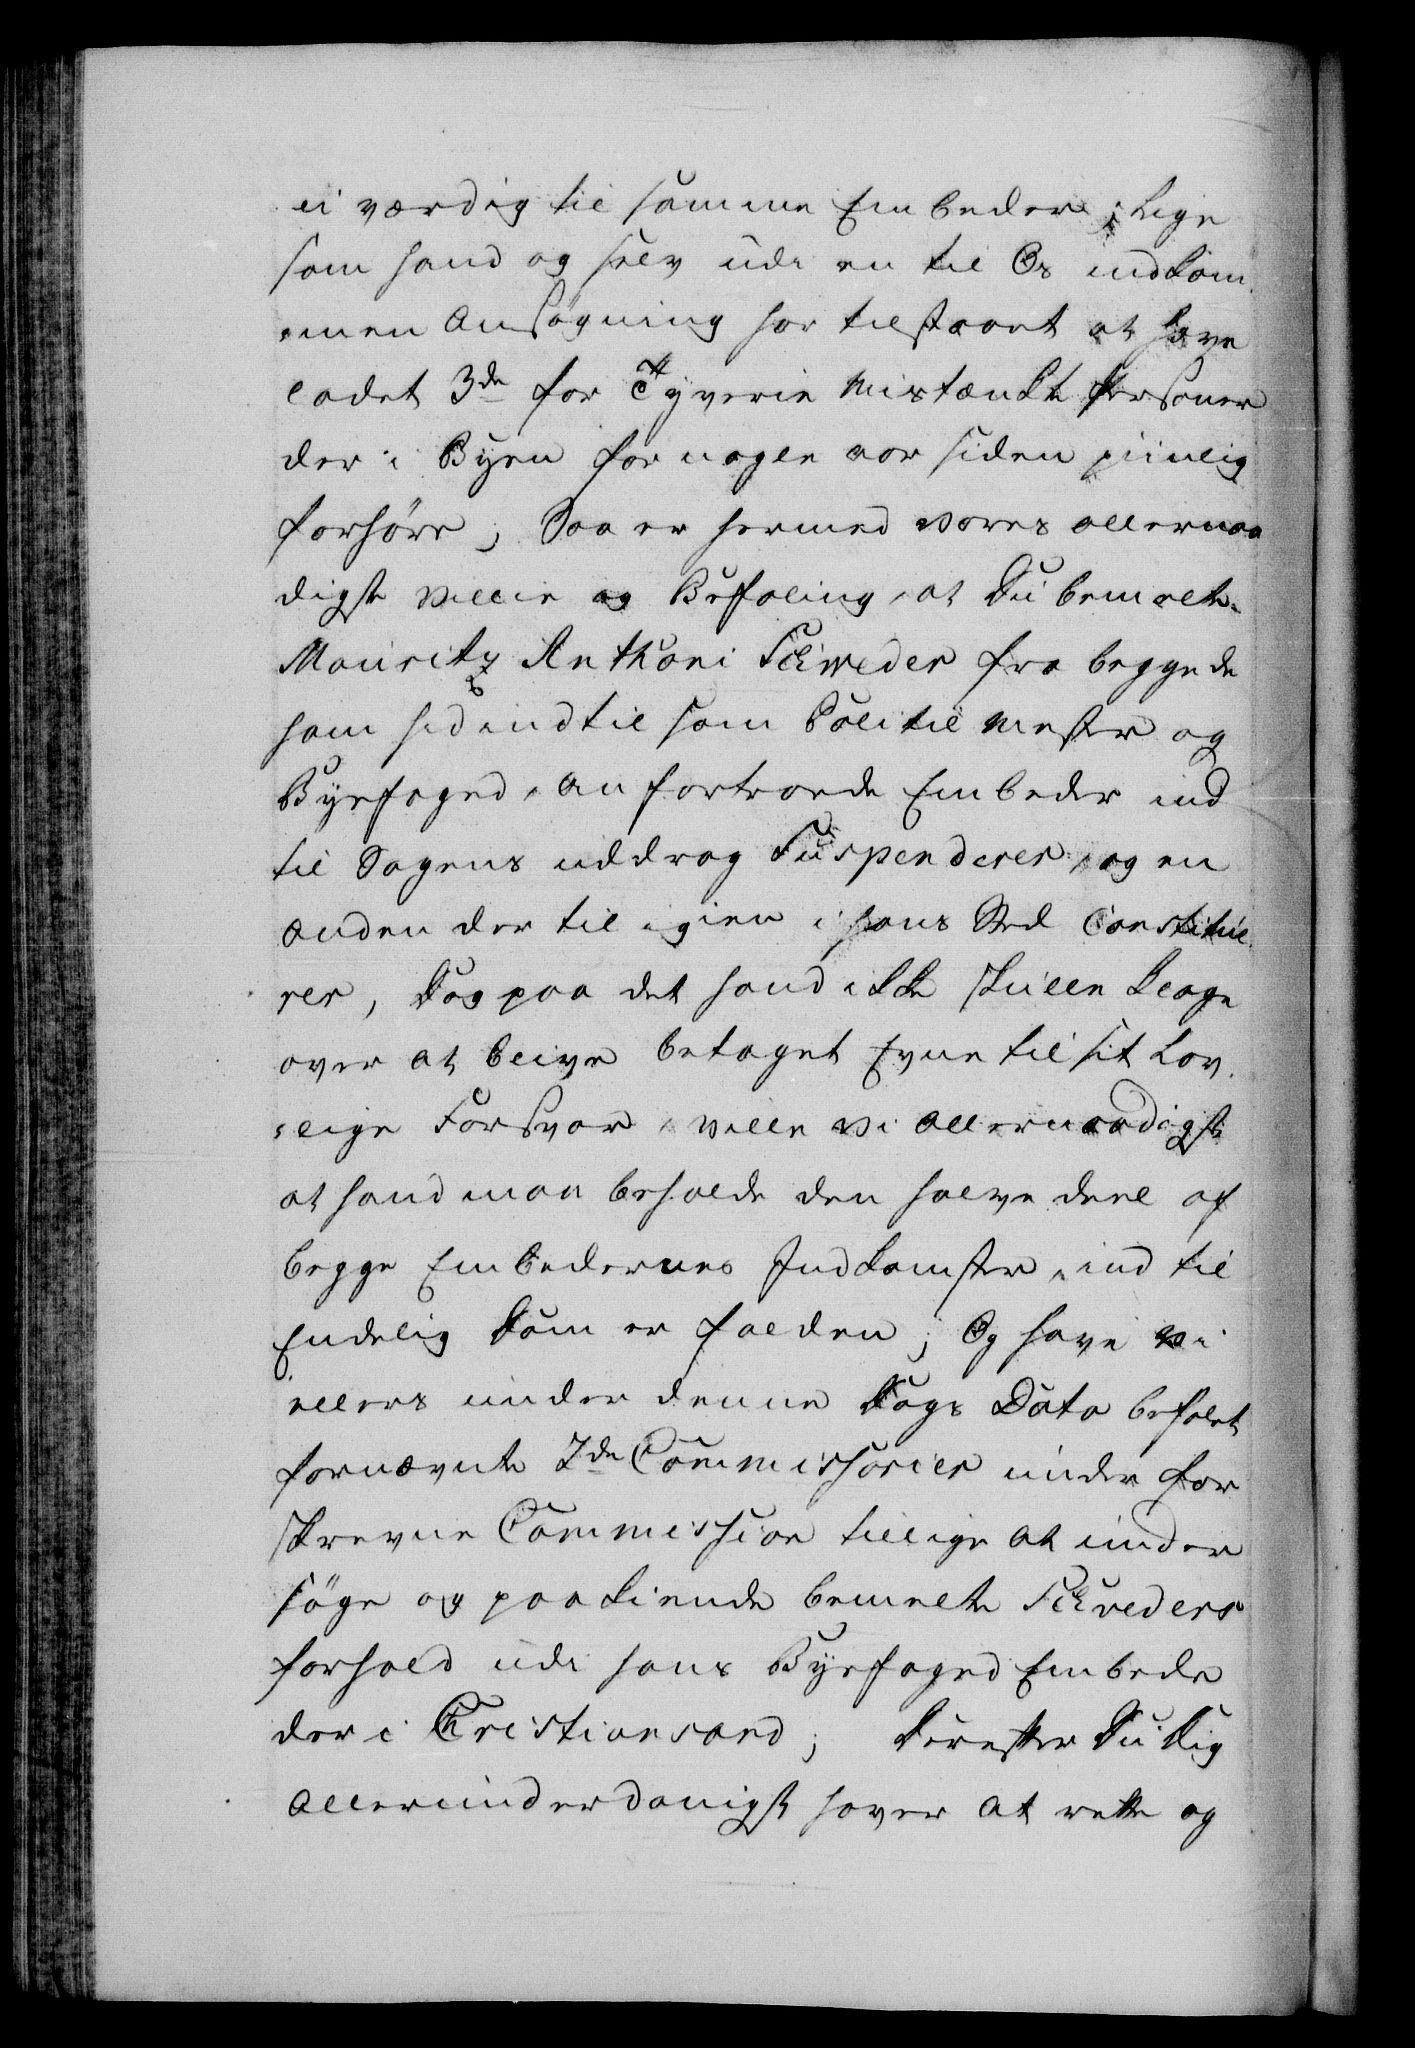 ei værdig til samme Embeder; Lige
som hand og selv udi en til Os indkom¬
¬men Ansøgning har tilstaaet at have
ladet 3de for Tyverie Mistænkte Personer
der i Byen for nogle aar siden piinlig
forhøre; Saa er hermed Vores allernaa
digste Villie og Befaling, at Du bemelte
Mouritz Anthoni Schweder fra begge de
ham hid indtil som Politie Mester og
Byefoged, anfortroede Embeder ind
til Sagens uddrag Suspenderer, og en
anden der til igien i hans Sted Constitue¬
rer, Dog paa det hand ikke skulle klage
over at blive betaget Evne til sit Lov¬
¬lige Forsvar, Ville Vi Allernaadigst
at hand maa beholde den halve deel af
begge Embedernes Indkomster, ind til
Endelig Dom er falden; Og have Vi
ellers under denne Dags Dato befalet
fornævnte 2de Commissarier under for
skrevne Commission tillige at under
søge og paakiende bemelte Schveders
forhold udi hans Byefoged Embede
der i Christiansand; Derefter Du Dig
Allerunderdanigst haver at rette og